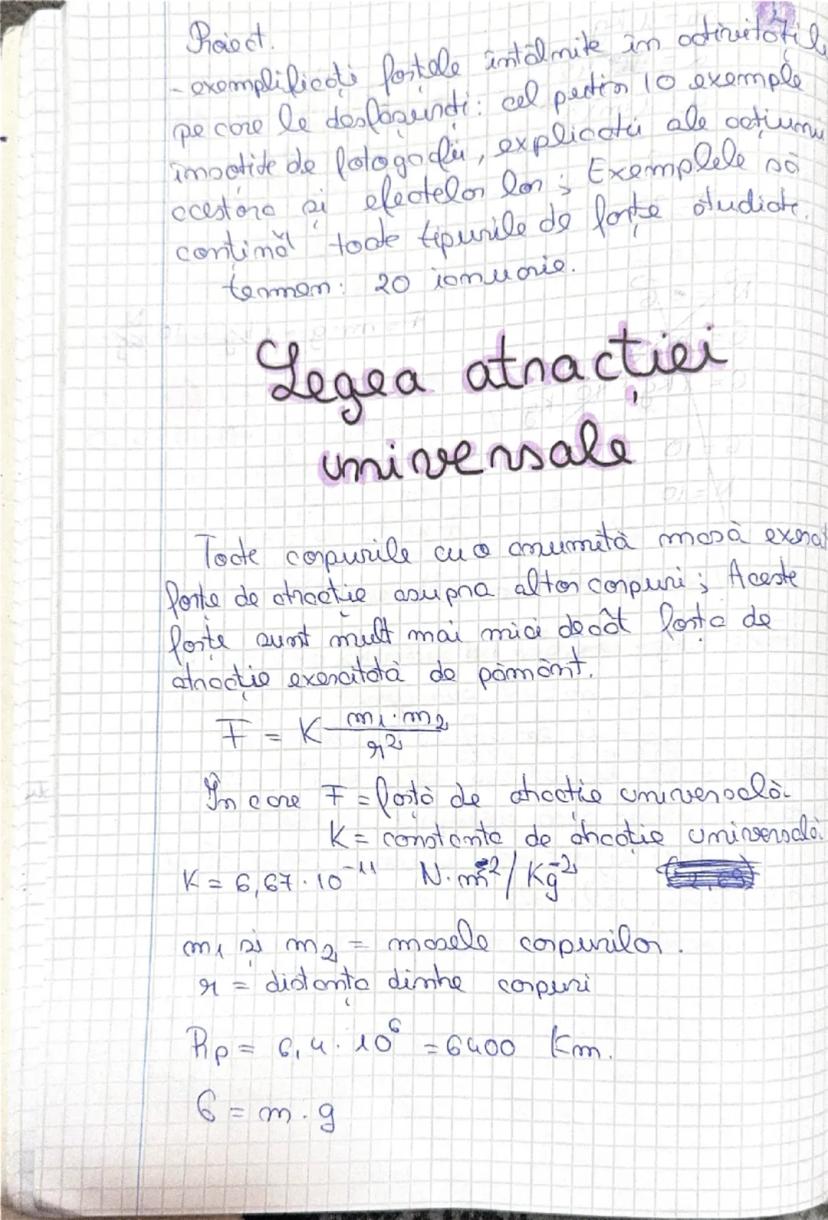 Proiect.
- exemplificați forțele întâlnite în activitățile
pe care le desfășurați: cel puțin 10 exemple
însoțite de fotografii, explicații ale acțiunii
acestora și efectelor lor; Exemplele să
conțină toate tipurile de forțe studiate.
termen: 20 ianuarie.
Legea atracției
universale
Toate corpurile cu o anumită masă exercită
forțe de atracție asupra altor corpuri; Aceste
forțe sunt mult mai mici decât forța de
atracție exercitată de pământ.
F = K m₁·m₂ / r²
În care F = forță de atracție universală.
K = constanta de atracție universală.
K = 6,67·10⁻¹¹ N·m² / Kg⁻²
m₁ și m₂ = masele corpurilor.
r = distanța dintre corpuri
Rp = 6,4·10⁶ = 6400 Km.
G = m·g